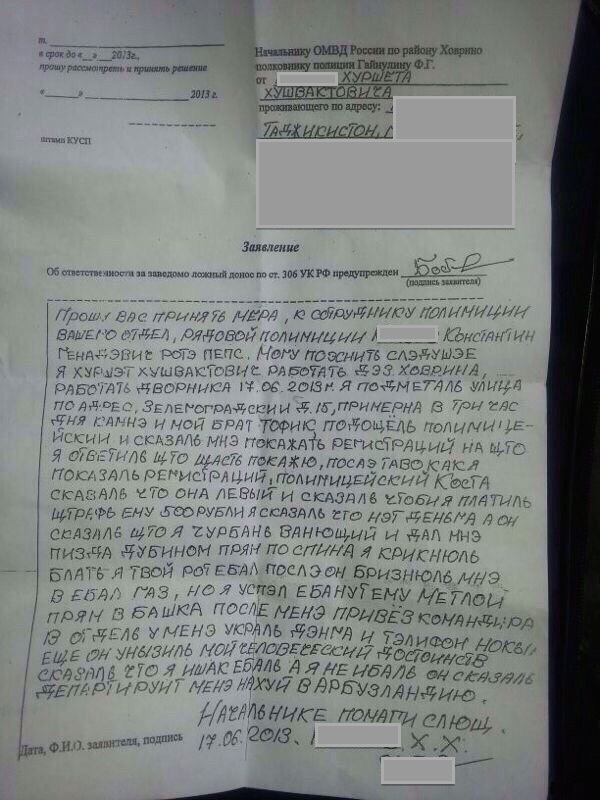 т.
в срок до «__»____2013г.,
прошу рассмотреть и принять решение
«______» ____________________ 2013 г.
штамп КУСП
Начальнику ОМВД России по району Ховрино
полковнику полиции Гайнулину Ф.Г.
от ХУРШЕТА
ХУШВАКТОВИЧА
проживающего по адресу:
ТАДЖИКИСТОН,
Заявление
Об ответственности за заведомо ложный донос по ст. 306 УК РФ предупрежден
(подпись заявителя)
ПРОШУ ВАС ПРИНЯТЬ МЕРА, К СОТРУДНИКУ ПОЛИМИЦИИ
ВАШЕГО ОТДЕЛ, РЯДОВОЙ ПОЛИМИЦИИ КОНСТАНТИН
ГЕНАДЭВИЧ РОТЭ ПЕПС. МОМУ ПОЭСНИТЬ СЛЭДУШЭЕ
Я ХУРШЭТ ХУШВАКТОВИЧ РАБОТАТЬ ДЭЗ ХОВРИНА,
РАБОТАТЬ ДВОРНИКА 17.06.2013м. Я ПОДМЕТАЛЬ УЛИЦА
ПО АДРЕС, ЗЕЛЕМОГРАДСКИЙ Д.15, ПРИМЕРНА В ТРИ ЧАС
ДНЯ КАМНЭ И МОЙ БРАТ ТОФИК ПОДОЩЕЛЬ ПОЛИМИЦЕ-
ЙСКИЙ И СКАЗАЛЬ МНЭ ПОКАЖАТЬ РЕГИСТРАЦИЙ НА ЩТО
Я ОТВЕТИЛЬ ЩТО ЩАСТЬ ПОКАЖЮ, ПОСЛЭ ТАВО КАК Я
ПОКАЗАЛЬ РЕМИСТРАЦИЙ, ПОЛИМИЦЕЙСКИЙ КОСТА
СКАЗАЛЬ ЧТО ОНА ЛЕВЫЙ И СКАЗАЛЬ ЧТОБИ Я ПЛАТИЛЬ
ЩТРАФЬ ЕМУ 500 РУБЛИ Я СКАЗАЛЬ ЧТО НЭТ ДЕНЬМА А ОН
СКАЗАЛЬ ЩТО Я ЧУРБАНЬ ВАНЮЩИЙ И ДАЛ МНЭ
ПИЗДА ДУБИНОМ ПРЯМ ПО СПИНА Я КРИКНЮЛЬ
БЛАТЬ Я ТВОЙ РОТ ЕБАЛ ПОСЛЭ ОН БРИЗНЮЛЬ МНЭ
В ЕБАЛ ГАЗ, НО Я УСПЭЛ ЕБАНУТ ЕМУ МЕТЛОЙ
ПРЯМ В БАШКА ПОСЛЕ МЕНЭ ПРИВЁЗ КОМАНДИРА
В ОТДЕЛЬ У МЕНЭ УКРАЛЬ ДЭНМА И ТЭЛИФОН НОКЫ
ЕЩЕ ОН УНЫЗИЛЬ МОЙ ЧЕЛОВЕЧЕСКИЙ ДОСТОИНСТВ
СКАЗАЛЬ ЧТО Я ИШАК ЕБАЛЬ А Я НЕ ИБАЛЬ ОН СКАЗАЛЬ
ДЕПАРТИРУИТ МЕНЭ НАХУЙ В АРБУЗЛАНДИЮ.
НАЧАЛЬНИКЕ ПОМАГИ СЛЮЩ.
Дата, Ф.И.О. заявителя, подпись
17.06.2013. Х.Х.